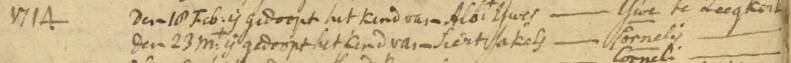 1714 Den 18 Feb: ij gedoopt het kind van Albt Ywes — Ywe te Leegkerk
Den 23 Mt ij gedoopt het kind van Siert Jakels — Cornelis
Corneli